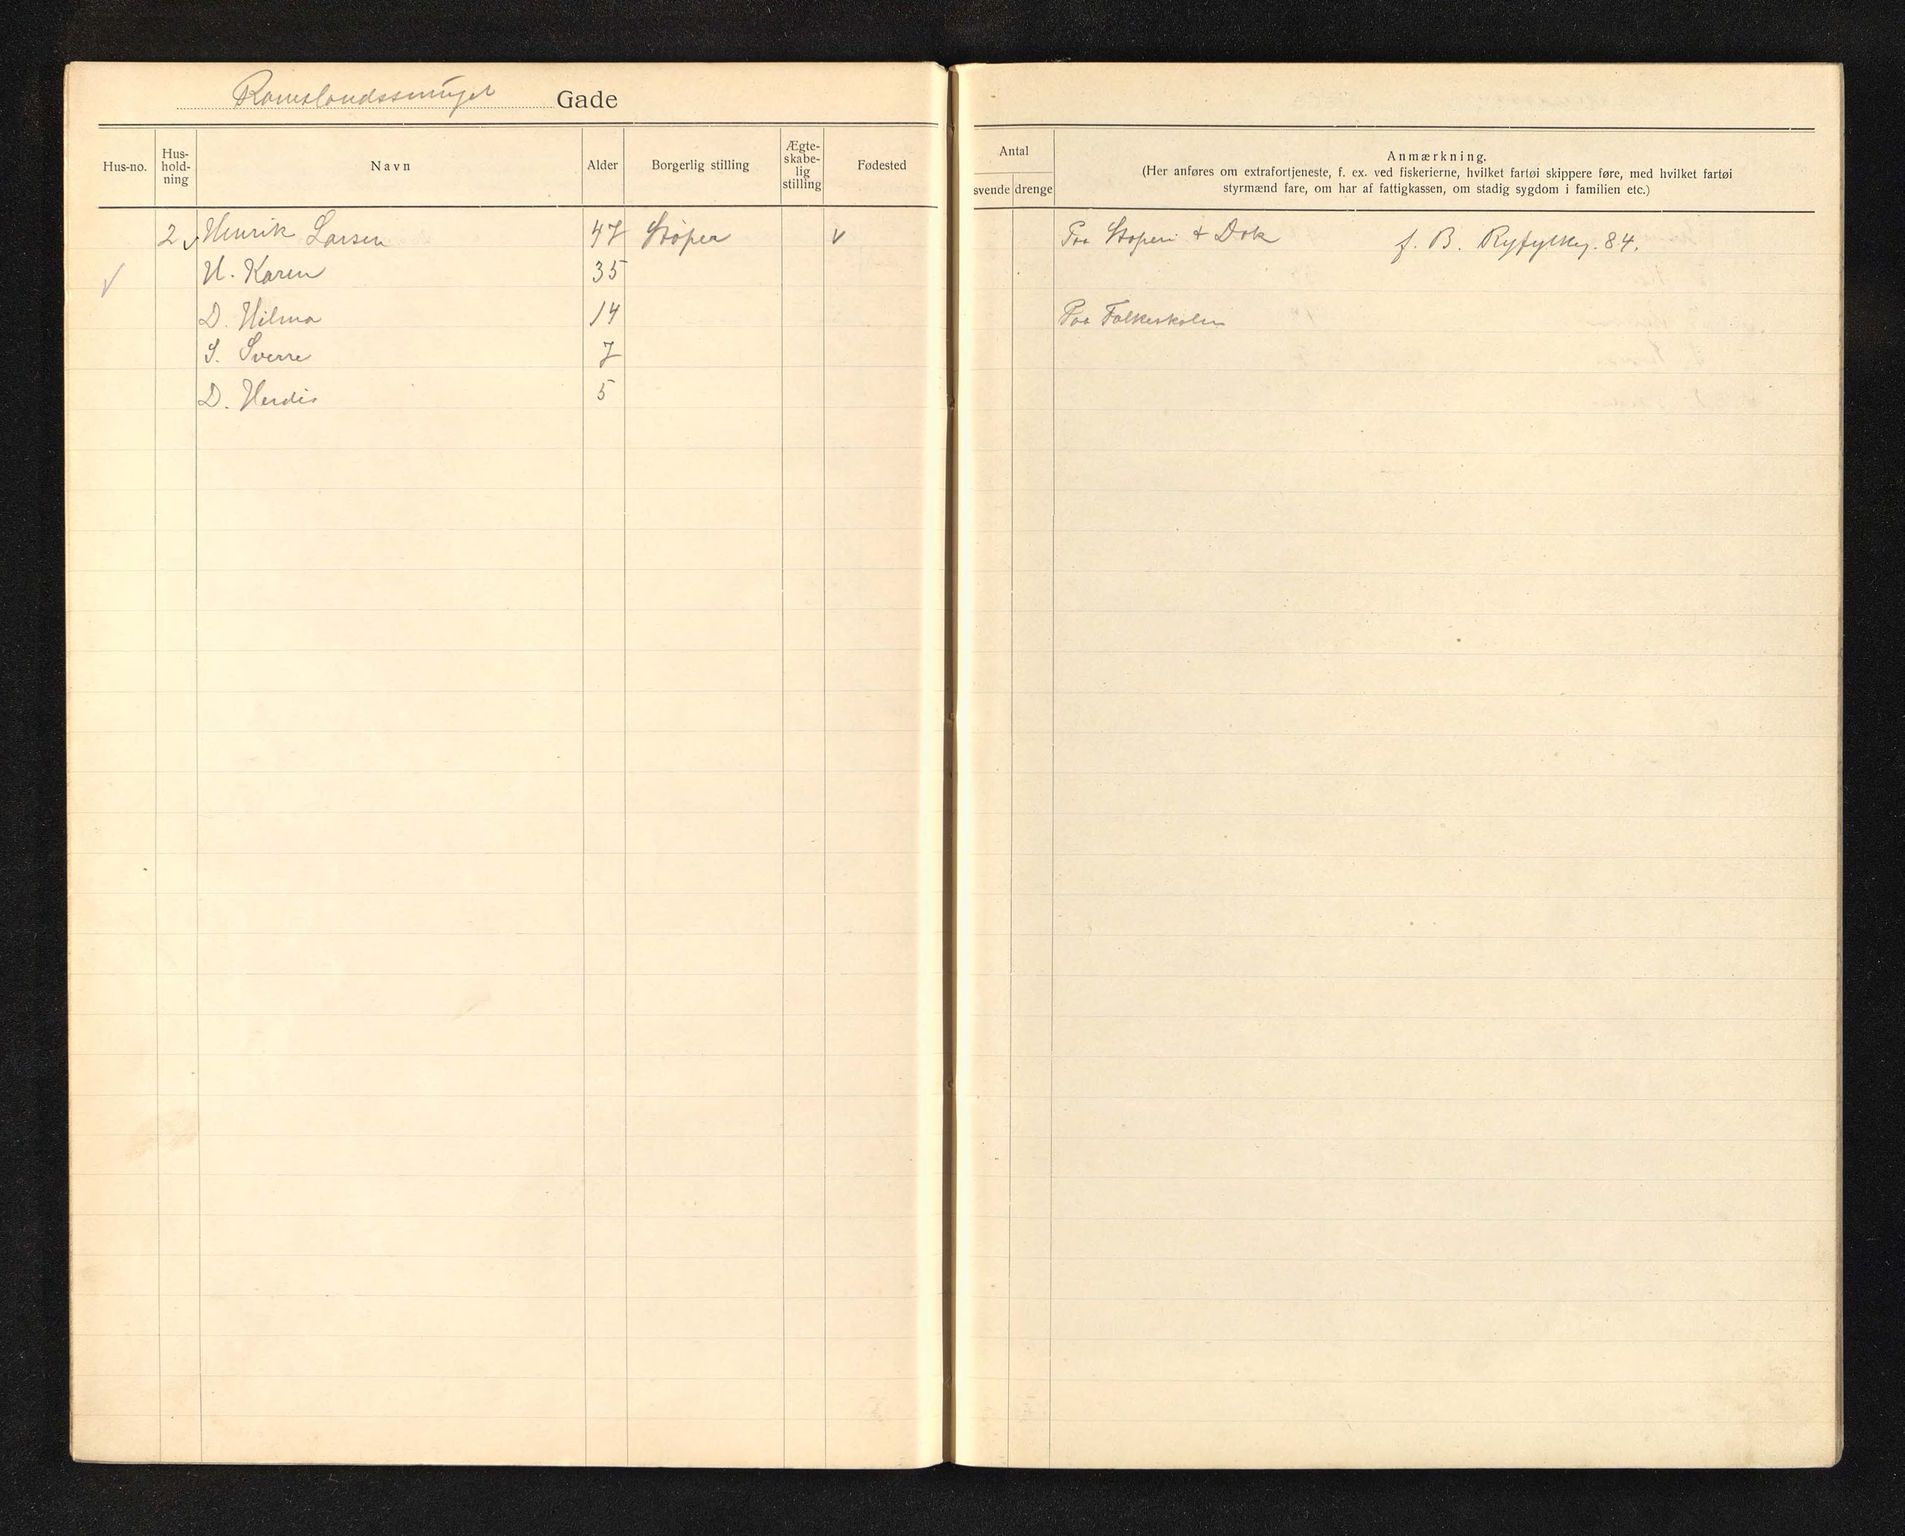 Ramslandssmuget Gade
Hus-no. Hus-hold-ning Navn Alder Borgerlig stilling Ægte-skabe-lig stilling Fødested
Antal
svende drenge
Anmærkning.
(Her anføres om extrafortjeneste, f. ex. ved fiskerierne, hvilket fartøi skippere føre, med hvilket fartøi
styrmænd fare, om har af fattigkassen, om stadig sygdom i familien etc.)
2 Henrik Larsen 47 Støper Paa Støperi + Dok f. B. Ryfylkeg. 84.
H. Karen 35
D. Hilma 14 Paa Folkeskolen
S. Sverre 7
D. Herdis 5